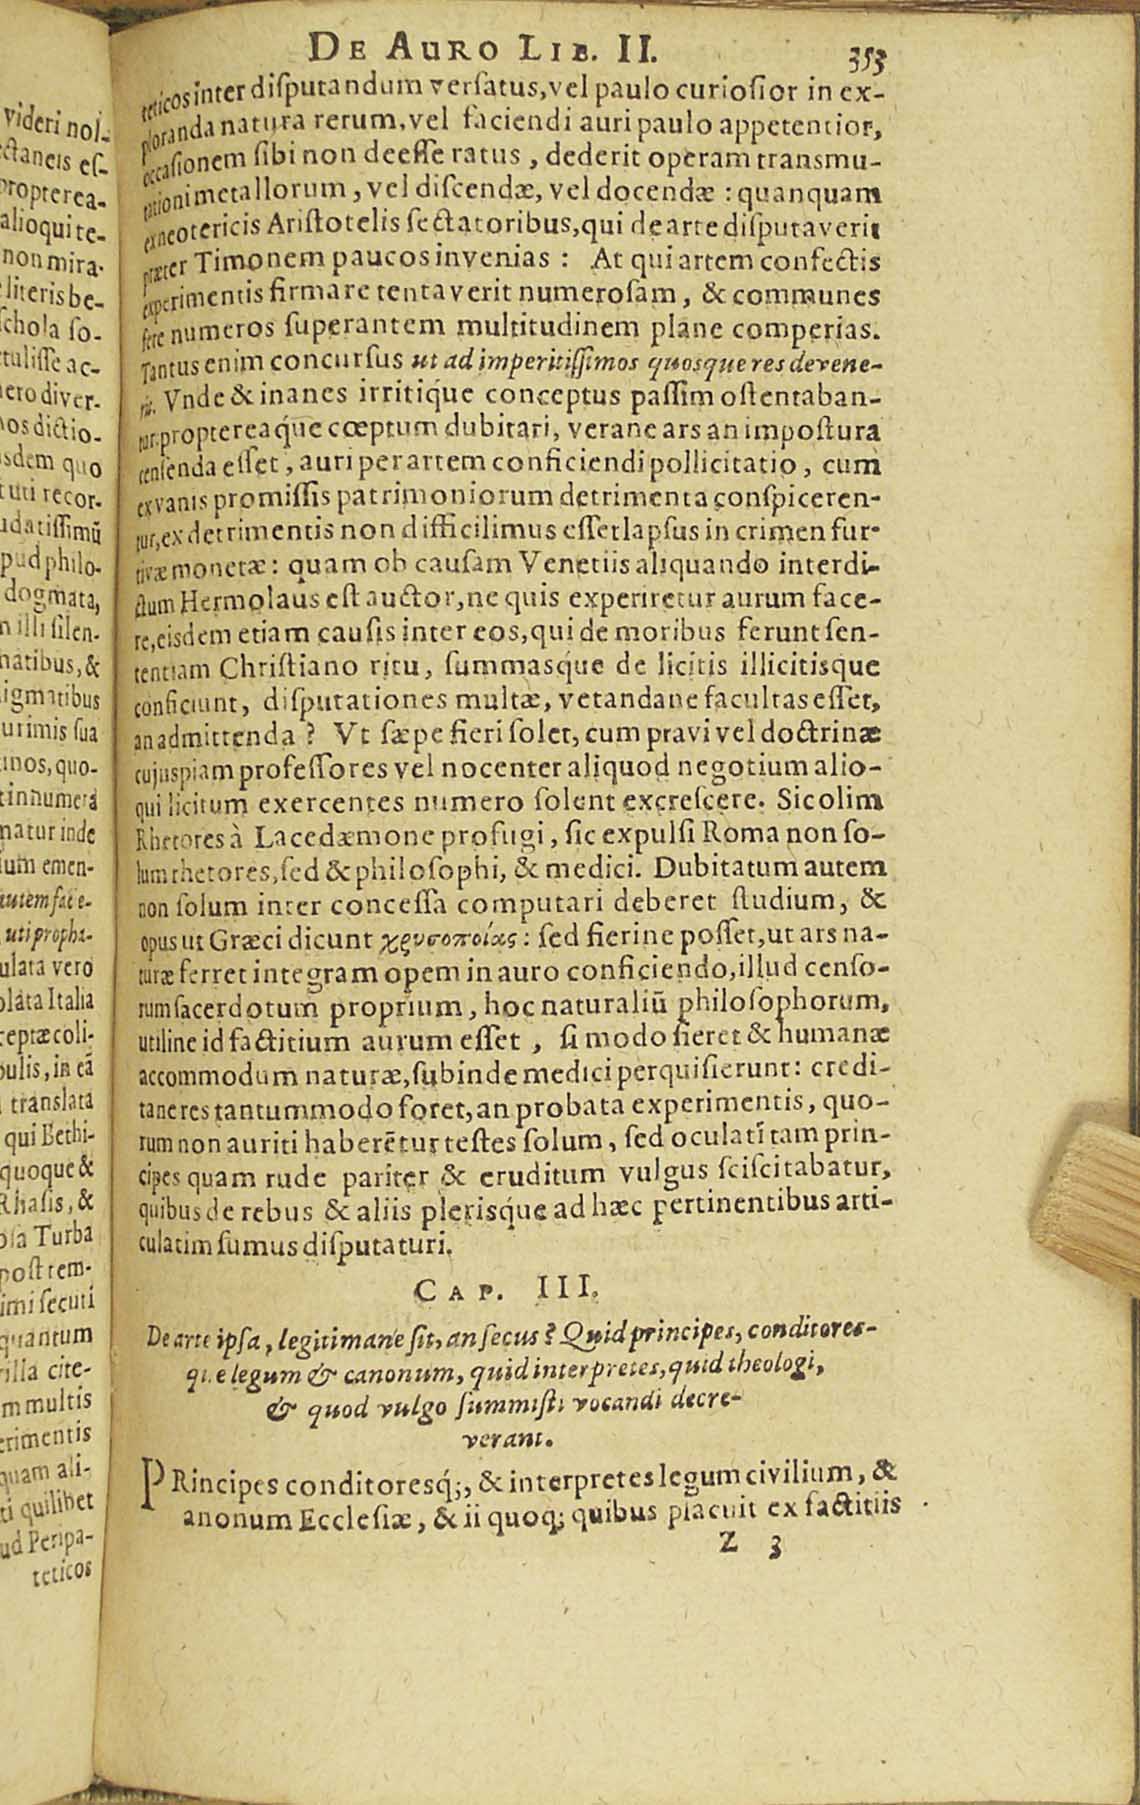 DE AURO LIB. II. 353
teticos inter diſputandum verſatus, vel paulo curioſior in ex-
ploranda natura rerum, vel faciendi auri paulo appetentior,
occaſionem ſibi non deeſſe ratus, dederit operam transmu-
tationi metallorum, vel diſcendæ, vel docendæ: quanquam
ex neotericis Ariſtotelis ſectatoribus, qui de arte diſputaverit
præter Timonem paucos invenias: At qui artem confectis
experimentis firmare tentaverit numeroſam, & communes
fere numeros ſuperantem multitudinem plane comperias.
Tantus enim concurſus ut ad imperitiſſimos quosque res devene-
rit. Vnde & inanes irritiq́ue conceptus paſſim oſtentaban-
tur: propterea q́ue cœptum dubitari, verane ars an impoſtura
cenſenda eſſet, auri per artem conficiendi pollicitatio, cum
ex vanis promiſſis patrimoniorum detrimenta conſpiceren-
tur, ex detrimentis non difficilimus eſſet lapſus in crimen fur-
tivæ monetæ: quam ob cauſam Venetiis aliquando interdi-
ctum Hermolaus eſt auctor, ne quis experiretur aurum face-
re, eisdem etiam cauſis inter eos, qui de moribus ferunt ſen-
tentiam Chriſtiano ritu, ſummasq́ue de licitis illicitisque
conficiunt, diſputationes multæ, vetandane facultas eſſet,
an admittenda? Vt ſæpe fieri ſolet, cum pravi vel doctrinæ
cujuspiam profeſſores vel nocenter aliquod negotium alio-
qui licitum exercentes numero ſolent excreſcere. Sic olim
Rhetores à Lacedæmone profugi, ſic expulſi Roma non ſo-
lum rhetores, ſed & philoſophi, & medici. Dubitatum autem
non ſolum inter conceſſa computari deberet ſtudium, &
opus ut Græci dicunt χρυσοποίας: ſed fierine poſſet, ut ars na-
turæ ferret integram opem in auro conficiendo, illud cenſo-
rum ſacerdotum proprium, hoc naturaliũ philoſophorum,
utiline id factitium aurum eſſet, ſi modo fieret & humanæ
accommodum naturæ, ſubinde medici perquiſierunt: credi-
tane res tantummodo foret, an probata experimentis, quo-
rum non auriti haberẽtur teſtes ſolum, ſed oculati: tam prin-
cipes quam rude pariter & eruditum vulgus ſciſcitabatur,
quibus de rebus & aliis plerisq́ue ad hæc pertinentibus arti-
culatim ſumus diſputaturi.
CAP. III.
De arte ipſa, legitimane ſit, an ſecus? Quid principes, conditores-
que legum & canonum, quid interpretes, quid theologi,
& quod vulgo ſummiſti vocandi decre-
verant.
PRincipes conditoresq́;, & interpretes legum civilium, &
anonum Eccleſiæ, & ii quoq; quibus placuit ex factitiis
Z 3
videri nol-
ctaneis eſ-
propterea-
alioqui te-
non mira-
literis be-
ſchola ſo-
tuliſſe ac-
ero diver-
nos dictio-
sdem quo
tuti recor-
udatiſſimũ
pud philo-
dogmata,
n illi ſilen-
natibus, &
igmatibus
urimis ſua
inos, quo-
tinnumera
natur inde
ium emen-
autem fate-
uti propha-
ulata vero
olata Italia
ceptæ coli-
pulis, in eã
translata
qui Bethi-
quoque &
Rhaſis, &
oſa Turba
poſtrem-
imi ſecuti
quantum
illa cite-
m multis
erimentis
quam ali-
ti quilibet
ud Peripa-
teticos